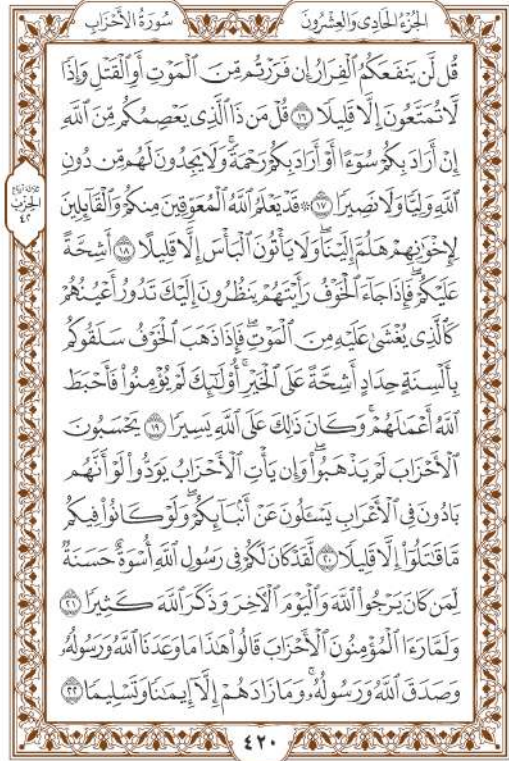 الجُزْءُ الحَادِي وَالعِشْرُونَ سُورَةُ الأَحْزَابِ
قُل لَّن يَنفَعَكُمُ ٱلْفِرَارُ إِن فَرَرْتُم مِّنَ ٱلْمَوْتِ أَوِ ٱلْقَتْلِ وَإِذًا
لَّا تُمَتَّعُونَ إِلَّا قَلِيلًا ١٦ قُلْ مَن ذَا ٱلَّذِي يَعْصِمُكُم مِّنَ ٱللَّهِ
إِنْ أَرَادَ بِكُمْ سُوٓءًا أَوْ أَرَادَ بِكُمْ رَحْمَةً ۚ وَلَا يَجِدُونَ لَهُم مِّن دُونِ
ٱللَّهِ وَلِيًّا وَلَا نَصِيرًا ١٧ ۞ قَدْ يَعْلَمُ ٱللَّهُ ٱلْمُعَوِّقِينَ مِنكُمْ وَٱلْقَآئِلِينَ
لِإِخْوَٰنِهِمْ هَلُمَّ إِلَيْنَا ۖ وَلَا يَأْتُونَ ٱلْبَأْسَ إِلَّا قَلِيلًا ١٨ أَشِحَّةً
عَلَيْكُمْ ۖ فَإِذَا جَآءَ ٱلْخَوْفُ رَأَيْتَهُمْ يَنظُرُونَ إِلَيْكَ تَدُورُ أَعْيُنُهُمْ
كَٱلَّذِي يُغْشَىٰ عَلَيْهِ مِنَ ٱلْمَوْتِ ۖ فَإِذَا ذَهَبَ ٱلْخَوْفُ سَلَقُوكُم
بِأَلْسِنَةٍ حِدَادٍ أَشِحَّةً عَلَى ٱلْخَيْرِ ۚ أُو۟لَٰٓئِكَ لَمْ يُؤْمِنُوا۟ فَأَحْبَطَ
ٱللَّهُ أَعْمَٰلَهُمْ ۚ وَكَانَ ذَٰلِكَ عَلَى ٱللَّهِ يَسِيرًا ١٩ يَحْسَبُونَ
ٱلْأَحْزَابَ لَمْ يَذْهَبُوا۟ ۖ وَإِن يَأْتِ ٱلْأَحْزَابُ يَوَدُّوا۟ لَوْ أَنَّهُم
بَادُونَ فِي ٱلْأَعْرَابِ يَسْـَٔلُونَ عَنْ أَنۢبَآئِكُمْ ۖ وَلَوْ كَانُوا۟ فِيكُم
مَّا قَٰتَلُوٓا۟ إِلَّا قَلِيلًا ٢٠ لَّقَدْ كَانَ لَكُمْ فِي رَسُولِ ٱللَّهِ أُسْوَةٌ حَسَنَةٌ
لِّمَن كَانَ يَرْجُوا۟ ٱللَّهَ وَٱلْيَوْمَ ٱلْـَٔاخِرَ وَذَكَرَ ٱللَّهَ كَثِيرًا ٢١
وَلَمَّا رَءَا ٱلْمُؤْمِنُونَ ٱلْأَحْزَابَ قَالُوا۟ هَٰذَا مَا وَعَدَنَا ٱللَّهُ وَرَسُولُهُۥ
وَصَدَقَ ٱللَّهُ وَرَسُولُهُۥ ۚ وَمَا زَادَهُمْ إِلَّآ إِيمَٰنًا وَتَسْلِيمًا ٢٢
ثلاثة أرباع
الحزب
٤٢
٤٢٠